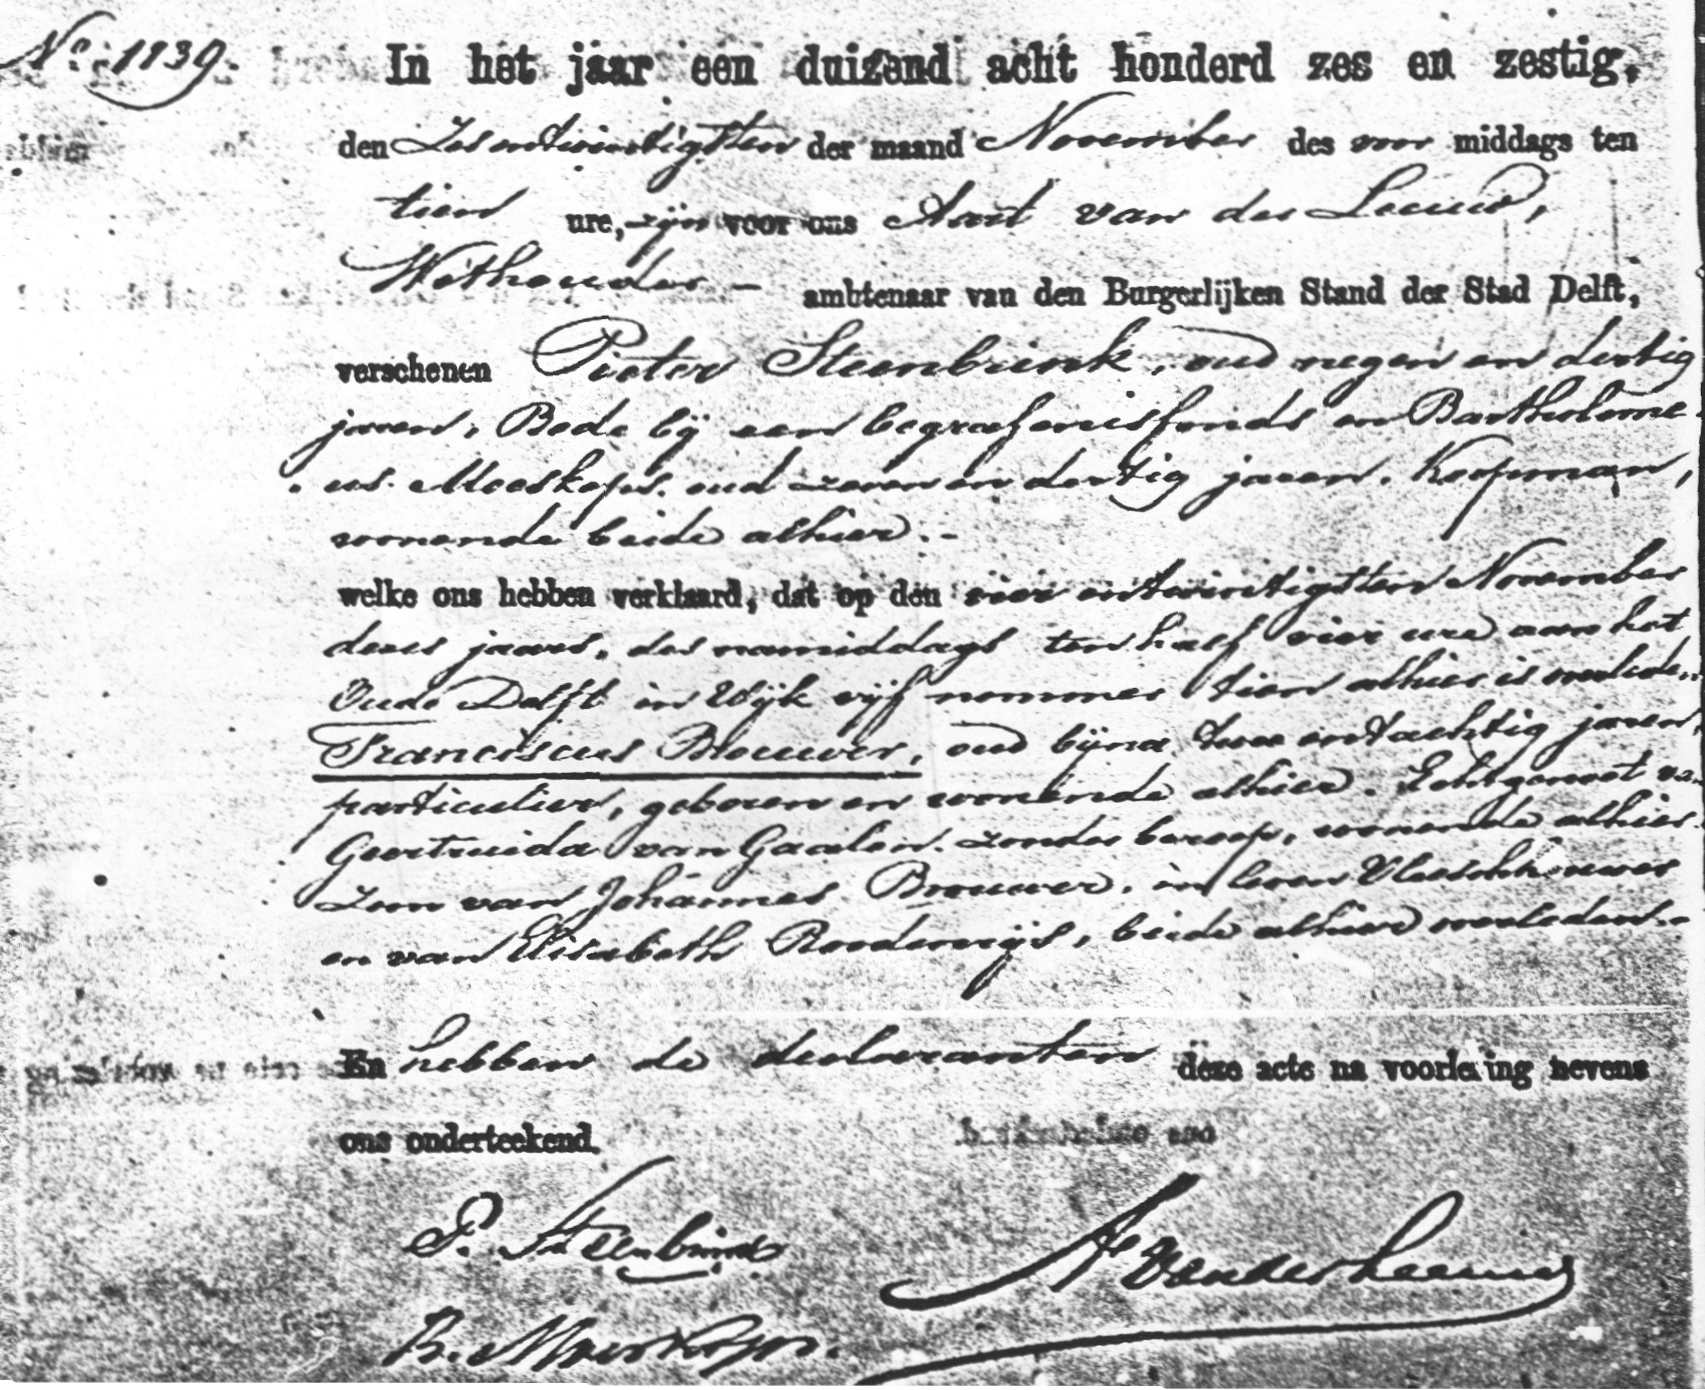 No. 1139.
In het jaar een duizend acht honderd zes en zestig,
den Zesentwintigsten der maand November des voor middags ten
tien ure, zijn voor ons Aart van der Leeuw,
Wethouder - ambtenaar van den Burgerlijken Stand der Stad Delft,
verschenen Pieter Steenbrink, oud negen en dertig
jaren, Bode bij een begrafenisfonds en Bartholome-
us Meeskops, oud zeven en dertig jaren, Koopman,
wonende beide alhier.-
welke ons hebben verklaard, dat op den vier entwintigsten November
dezes jaars, des namiddags ten half vier ure aan het
Oude Delft in Wijk vijf nommer tien alhier is overleden
Franciscus Brouwer, oud bijna twee entachtig jaren,
particulier, geboren en wonende alhier. Echtgenoot van
Geertruida van Gaalen, zonder beroep, wonende alhier.
Zoon van Johannes Brouwer, in leven Vleeschhouwer
en van Elisabeth Roodewijs, beide alhier overleden.-
En hebben de declaranten deze acte na voorlezing nevens
ons onderteekend.
P. Steenbrink
A Vander Leeuw
B. Meeskops.